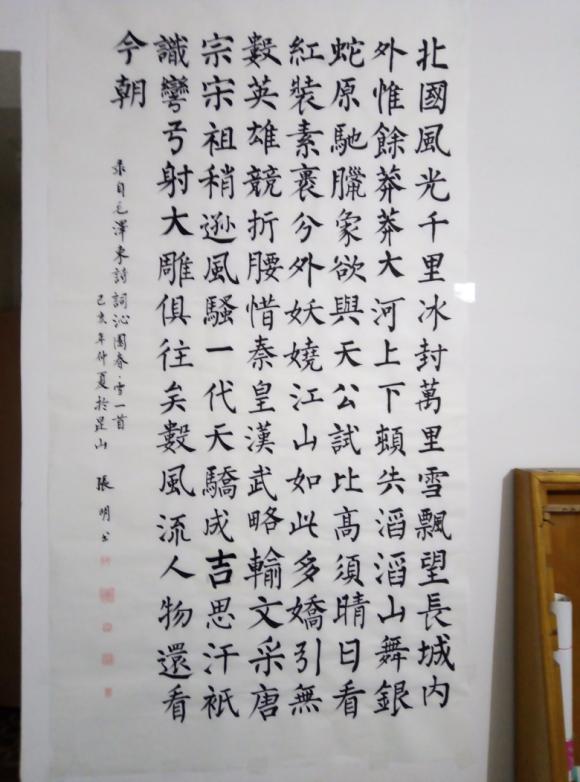 北國風光千里冰封萬里雪飄望長城内
外惟餘莽莽大河上下頓失滔滔山舞銀
蛇原馳臘象欲與天公試比高須晴日看
紅裝素裹分外妖嬈江山如此多嬌引無
數英雄競折腰惜秦皇漢武略輸文采唐
宗宋祖稍遜風騷一代天驕成吉思汗衹
識彎弓射大雕俱往矣數風流人物還看
今朝
录自毛澤東詩詞沁園春·雪一首
己亥年仲夏於昆山 張明书